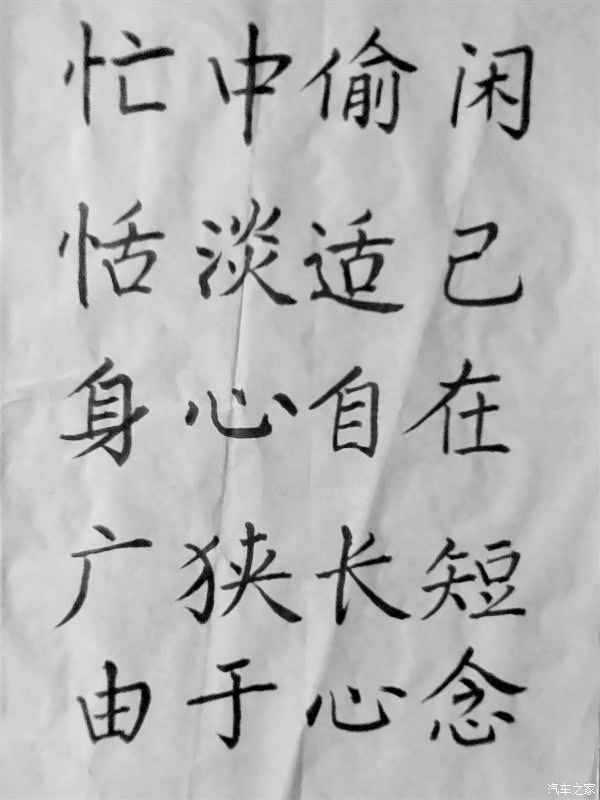 忙中偷闲
恬淡适己
身心自在
广狭长短
由于心念
汽车之家